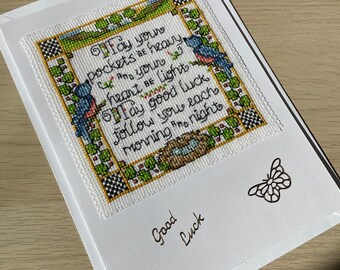 May your
pockets be heavy
and your
heart be light
May good luck
follow you each
morning and night
Good
Luck